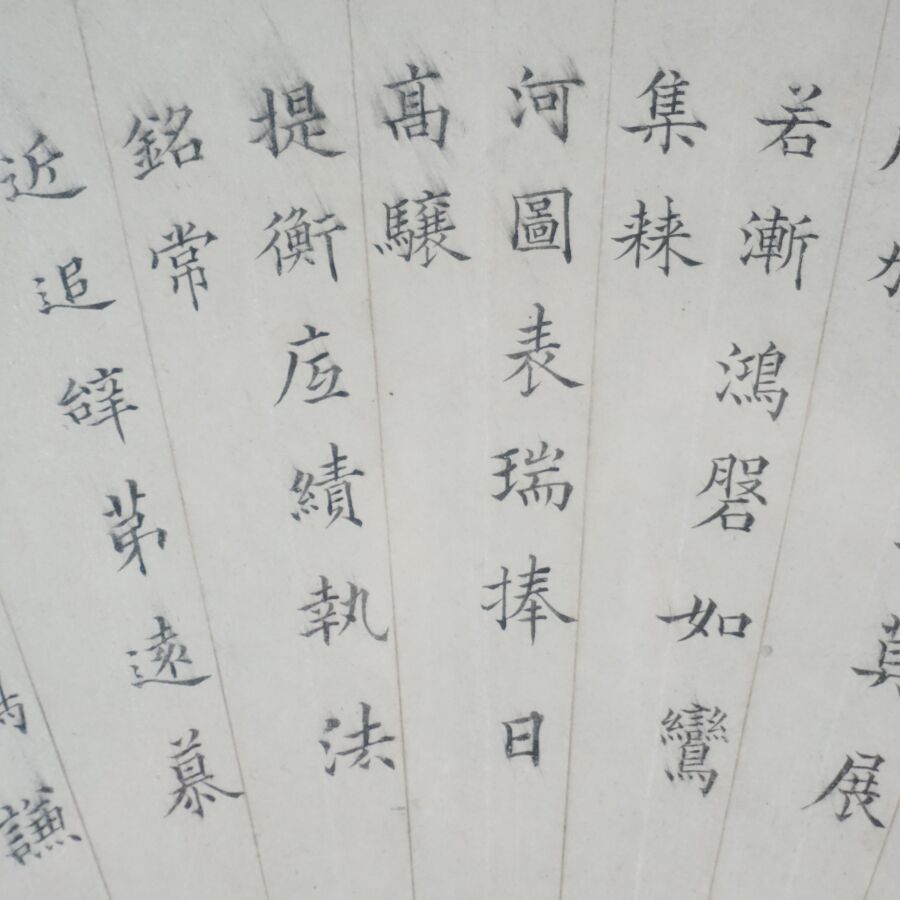 展
若漸鴻磐如鸞
集棘
河圖表瑞捧日
高驤
提衡底績執法
銘常
近追辥苐遠慕
謙